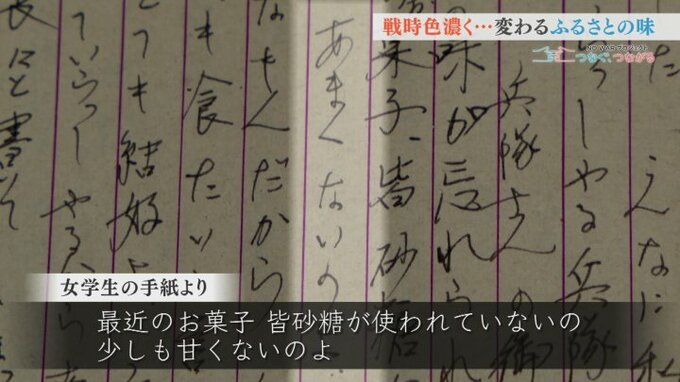 戦時色濃く…変わるふるさとの味
NO WARプロジェクト
つなぐ、つながる
しやる兵隊
兵隊さんの
味が忘れられ
菓子、皆砂
あまくないの
なもんだから
も食たい
とても結好
ていらっしやる
にと書いて
女学生の手紙より
最近のお菓子 皆砂糖が使われていないの
少しも甘くないのよ